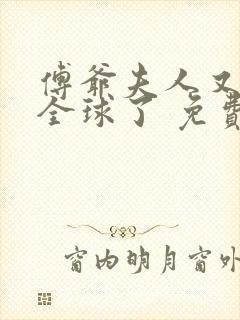 傅爺夫人又
全球了 免費
窗内明月窗外